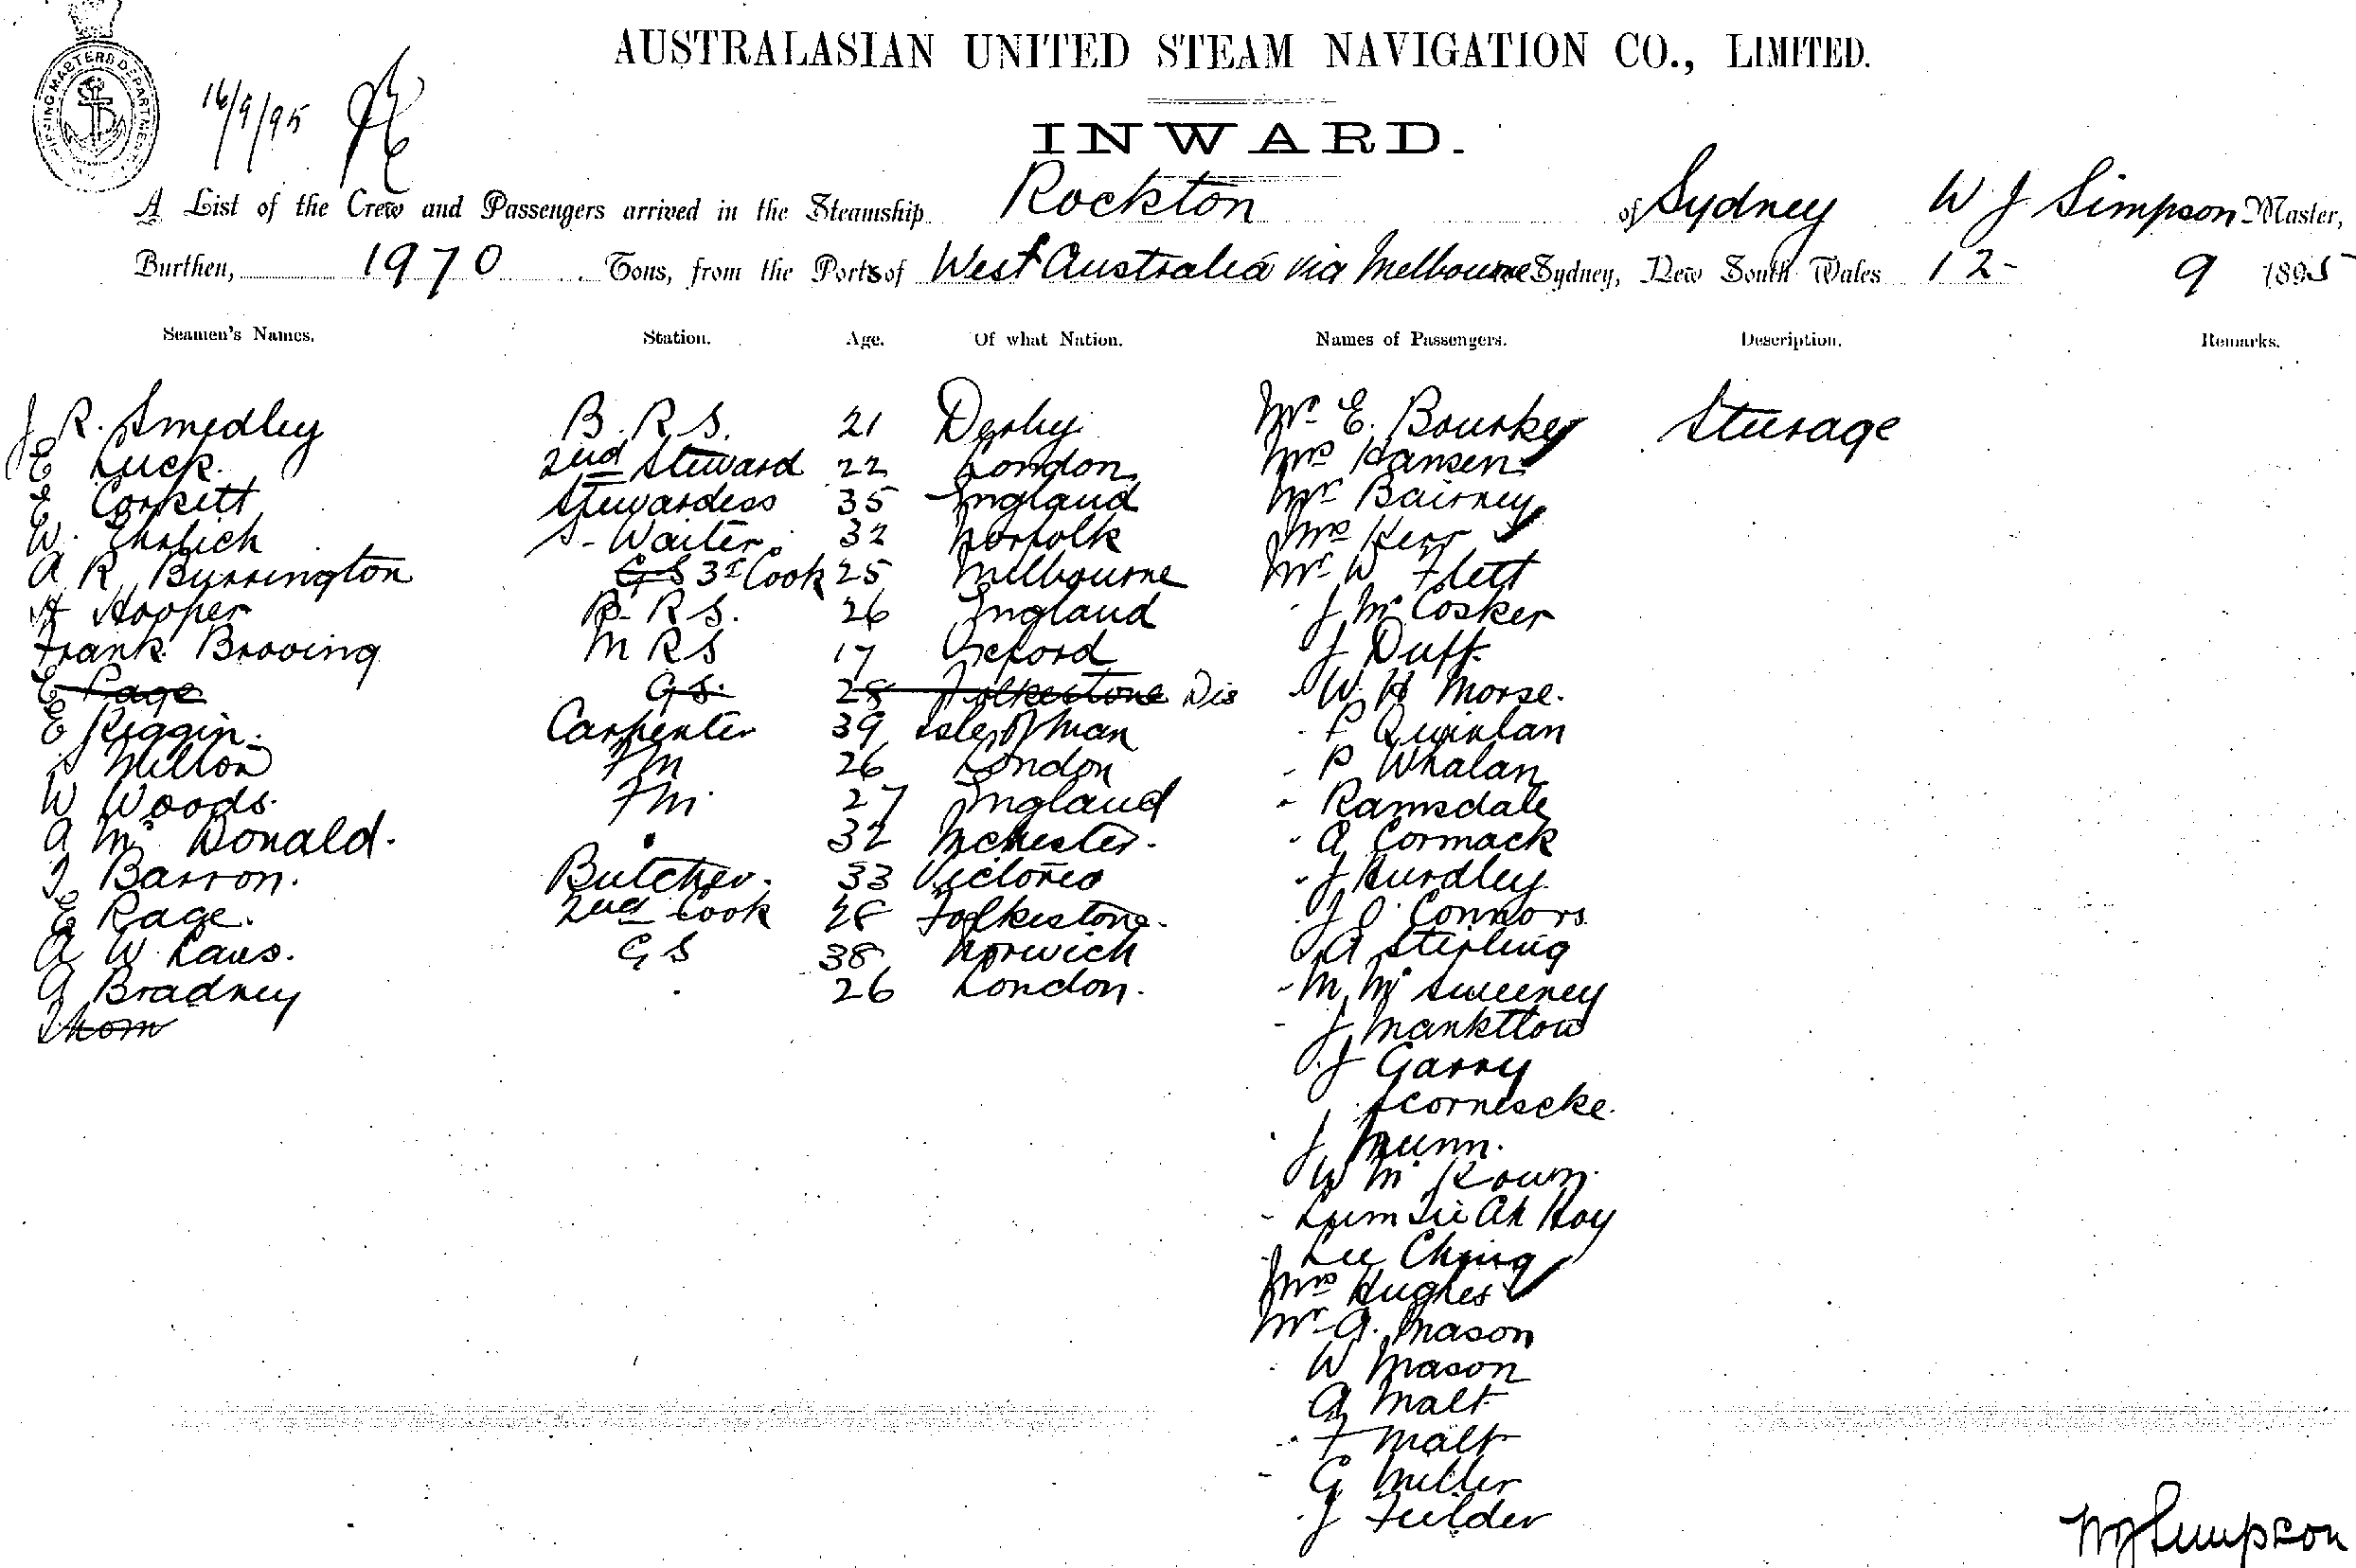 AUSTRALASIAN UNITED STEAM NAVIGATION CO., LIMITED.
16/9/95
INWARD.
A List of the Crew and Passengers arrived in the Steamship Rockton of Sydney W J Simpson Master,
Burthen, 1970 Tons, from the Ports of West Australia via Melbourne Sydney, New South Wales 12- 9 1895
Seamen's Names. Station. Age. Of what Nation. Names of Passengers. Description. Remarks.
J R. Smedley B. R S. 21 Derby Mr E. Bourke Steerage
E Luck. 2nd Steward 22 London Mrs Hansen
E Corkett Stewardess 35 England Mr Bairney
W. Ehrlich S- Waiter. 32 Norfolk Mrs Kerr
A R Burrington G S 3rd Cook 25 Melbourne Mr W Flett
A Hooper B- R S. 26 England J McCosker
Frank Brooing M R S 17 Oxford J Duff
E Page G S. 28 Folkestone Dis W. H Morse.
E Kiggin. Carpenter 39 Isle of Man P Quinlan
S Milton Fm 26 London P Whalan
W Woods. Fm. 27 England Ramsdale
A Mc Donald. 32 Mchester. A Cormack
J Barron. Butcher. 33 Victoria J Hurdley
E Page. 2nd Cook 28 Folkestone. J O'Connors
A W Laws. G S 38 Norwich A Stirling
A Bradney 26 London. M McSweeney
Thom J Manktlow
J Garry
J Munn.
W McKown
Lum Tie Ah Hoy
Lee Ching
Mrs Hughes
Mr A. Mason
W Mason
A Malt
F Malt
G Miller
J Feilder
W J Simpson